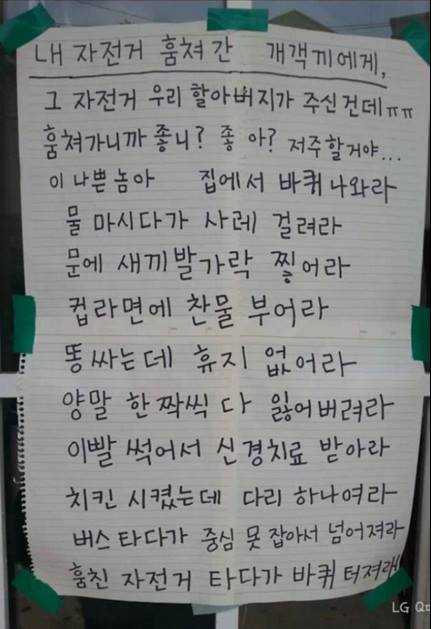 내 자전거 훔쳐간 개객끼에게,
그 자전거 우리 할아버지가 주신건데ㅠㅠ
훔쳐가니까 좋니? 좋아? 저주할거야...
이 나쁜놈아 집에서 바퀴 나와라
물 마시다가 사레 걸려라
문에 새끼발가락 찧어라
컵라면에 찬물 부어라
똥싸는데 휴지 없어라
양말 한짝씩 다 잃어버려라
이빨 썩어서 신경치료 받아라
치킨 시켰는데 다리 하나여라
버스타다가 중심 못 잡아서 넘어져라
훔친 자전거 타다가 바퀴 터져라!
LG